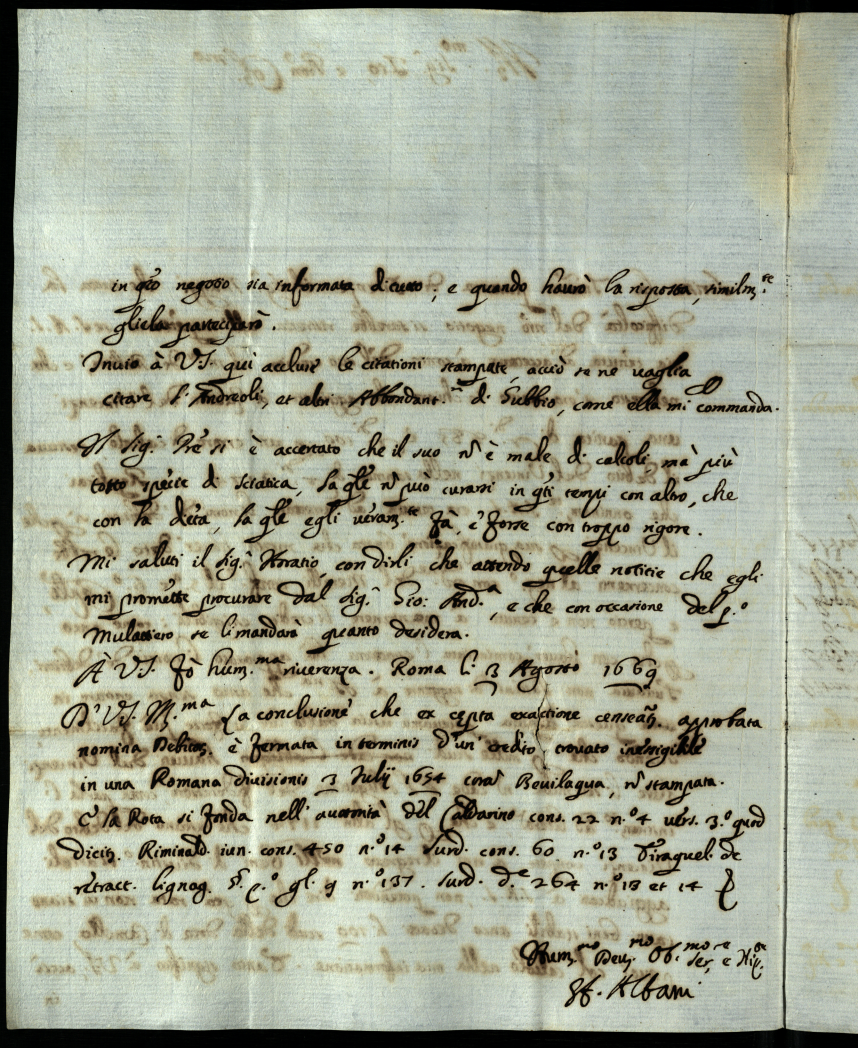 in q.to negotio sia informata di tutto; e quando haurò la risposta, similm.te
gliela parteciparò.
Inuio à V.S. qui accluse le citationi stampate, acciò se ne vaglia
citare l'Andreoli, et altri Abbondant.ri di Gubbio, come ella mi commanda.
Il Sig.r Pre si è accertato che il suo nō è male di calcoli, mà più
tosto specie di sciatica, la qle nō può curarsi in q.ti tempi con altro, che
con la dieta, la qle egli veram.te fà, e forse con troppo rigore.
Mi saluti il Sig.r Horatio, con dirli che attendo quelle notitie che egli
mi promette procurare dal Sig.r Gio: And.a, e che con occasione del p.o
Mulattiero se li mandarà quanto desidera.
À V.S. fò hum.ma riuerenza. Roma li 3 Agosto 1669
D' V.S. Ill.ma La conclusione che ex cępta exactione censeat.r approbata
nomina Debitor. è fermata in terminis d'un credito trouato inesigibile
in una Romana diuisionis 3 Julij 1654 corā Beuilaqua, nō stampata.
E la Rota si fonda nell'autorità del Caldarino cons. 22 n.o 4 vers. 3.o quod
dicit. Riminald. iun. cons. 450 n.o 14 Surd. cons. 60 n.o 13 Tiraquel. de
retract. lignag. §. p.o gl. 9 n.o 137. Surd. d.e 264 n.o 13 et 14
Hum.mo Deu.mo Obl.mo Ser.e e Nip.e
Albani